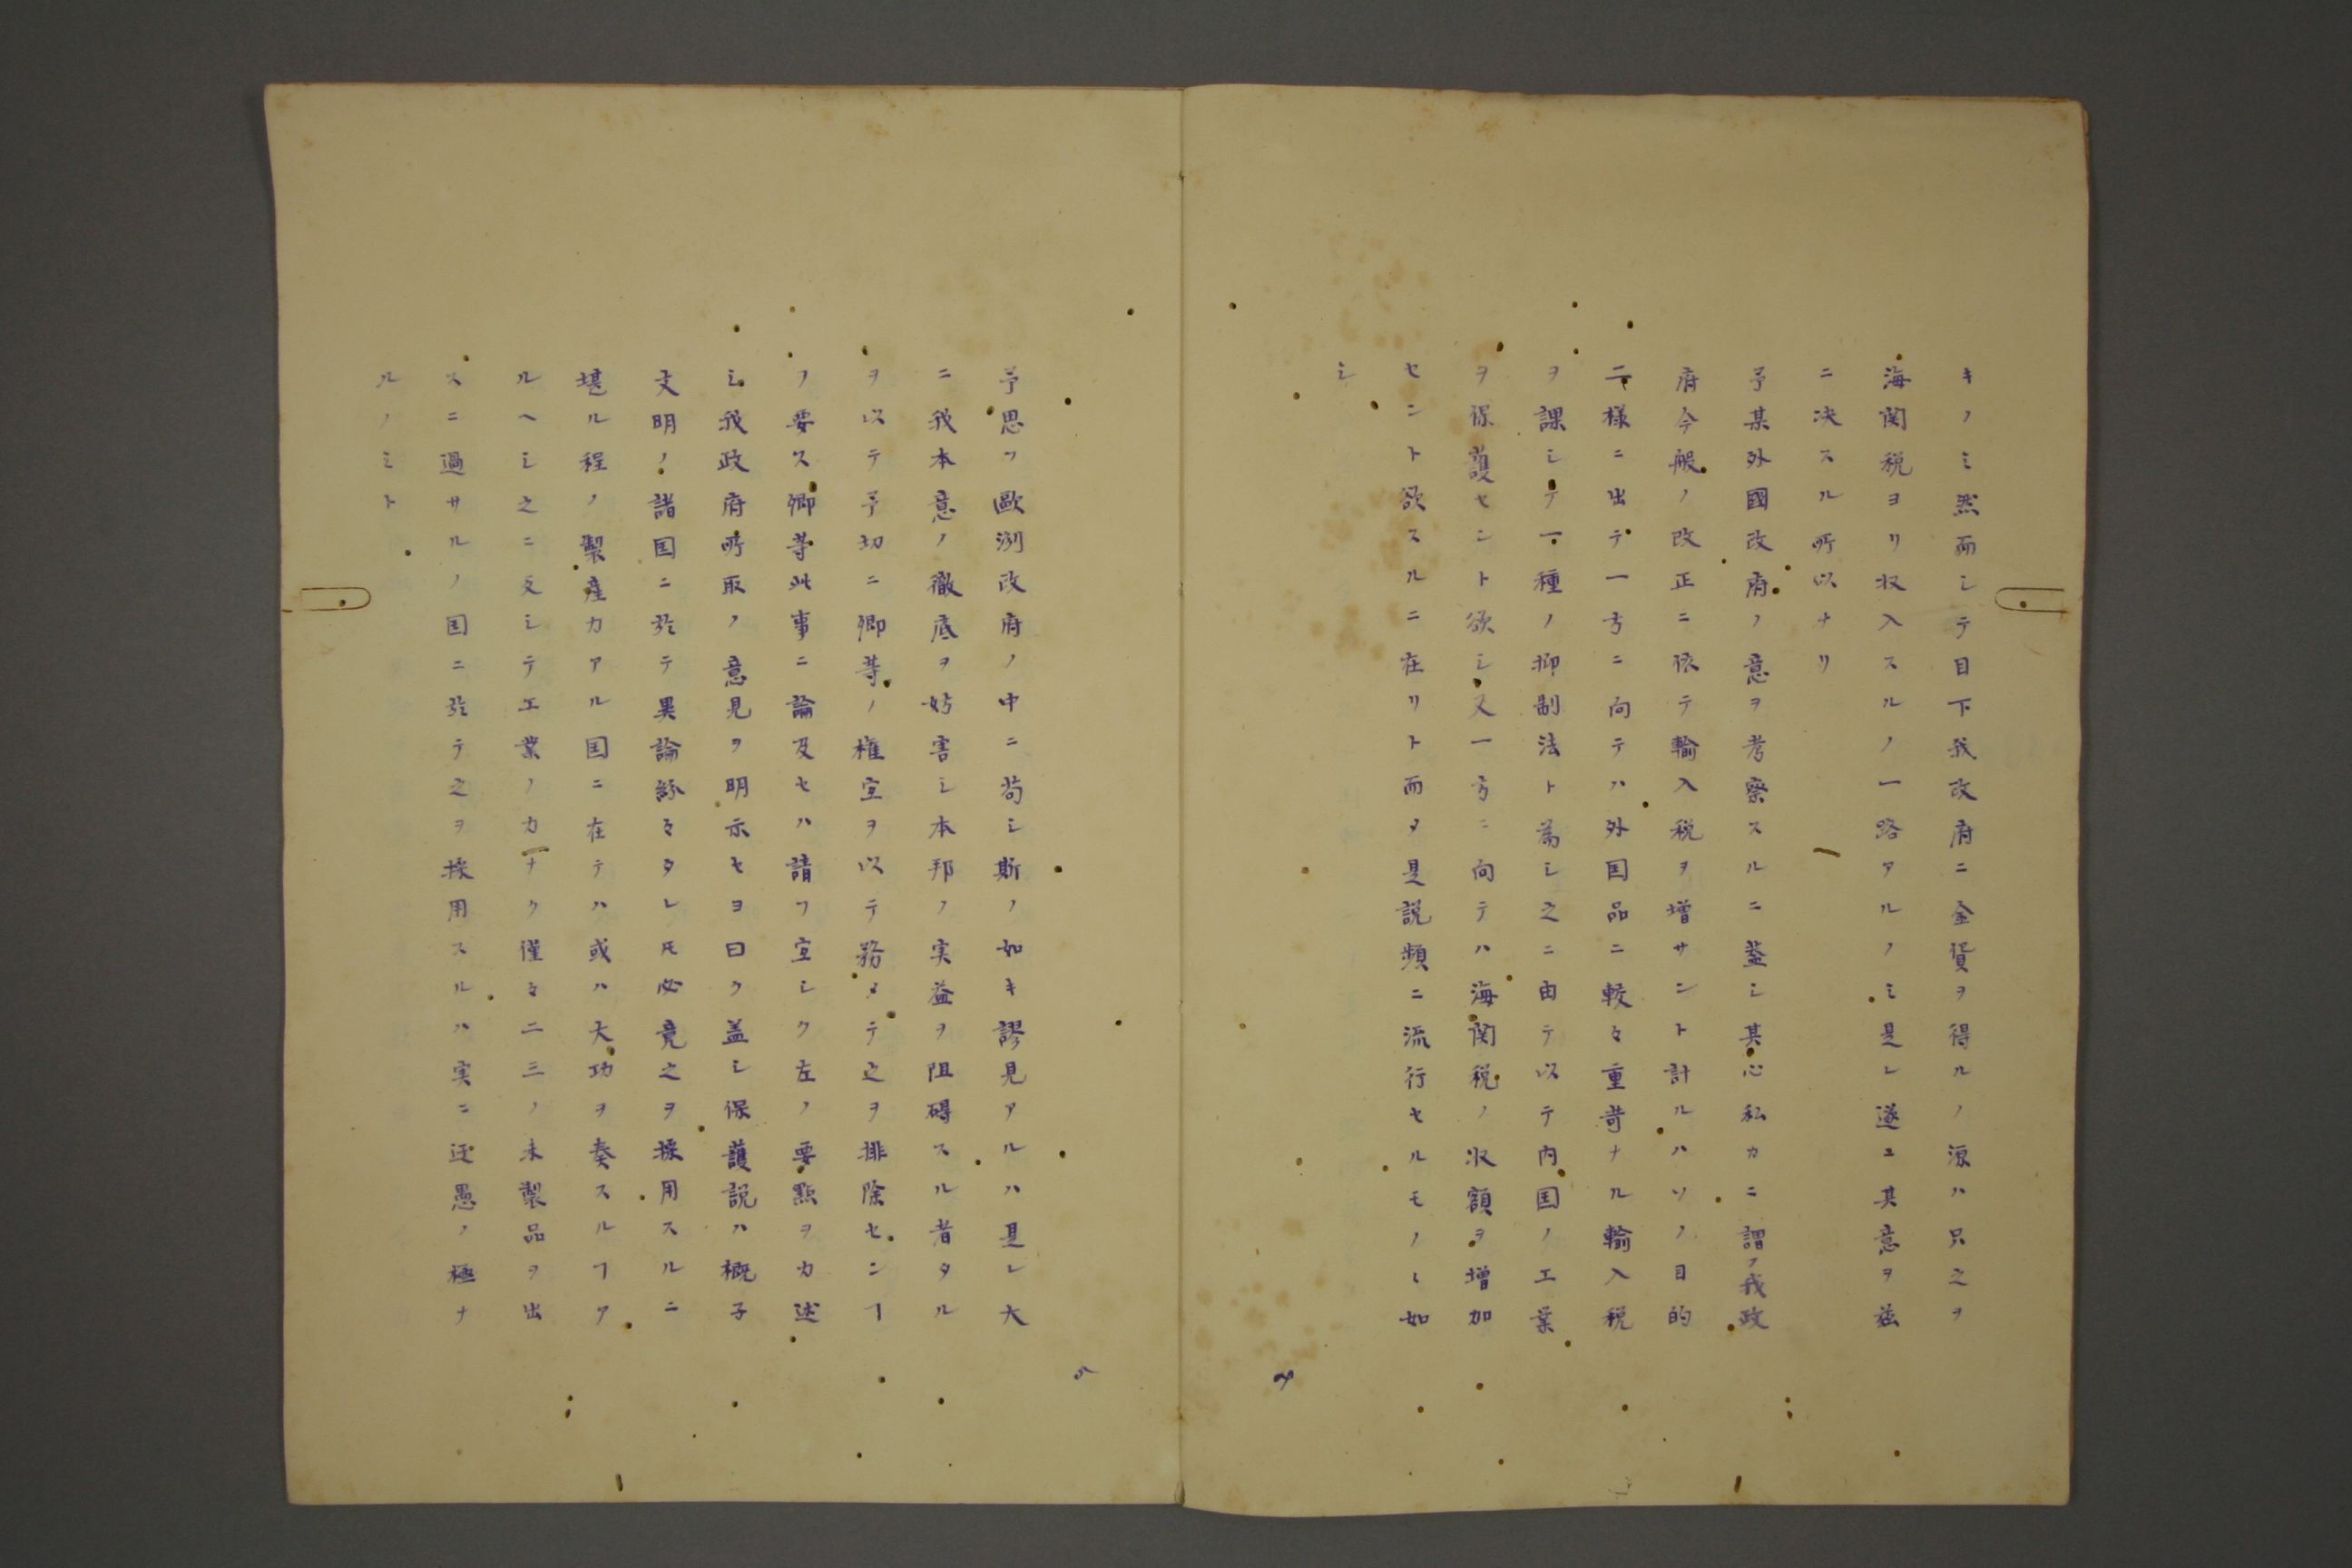 キノミ然而シテ目下我政府ニ金貨ヲ得ルノ源ハ只之ヲ
海関税ヨリ収入スルノ一路アルノミ是レ遂ニ其意ヲ茲
ニ决スル所以ナリ
予某外國政府ノ意ヲ考察スルニ蓋シ其心私カニ謂フ我政
府今般ノ改正ニ依テ輸入税ヲ増サント計ルハソノ目的
二様ニ出テ一方ニ向テハ外国品ニ較々重苛ナル輸入税
ヲ課シテ一種ノ抑制法ト為シ之ニ由テ以テ内国ノ工業
ヲ保護セント欲シ又一方ニ向テハ海関税ノ収額ヲ増加
セント欲スルニ在リト而タ是説頻ニ流行セルモノヽ如
シ
4
5
予思フ歐洲政府ノ中ニ苟シ斯ノ如キ謬見アルハ是レ大
ニ我本意ノ徹底ヲ妨害シ本邦ノ実益ヲ阻碍スル者タル
ヲ以テ予切ニ卿等ノ権宜ヲ以テ務メテ之ヲ排除センヿ
ヲ要ス卿等此事ニ論及セハ請フ宜シク左ノ要點ヲカ述
シ我政府所取ノ意見ヲ明示セヨ曰ク盖シ保護説ハ概子
文明ノ諸国ニ於テ異論紛々タレ𪜈必竟之ヲ採用スルニ
堪ル程ノ製産力アル国ニ在テハ或ハ大功ヲ奏スルヿア
ルヘシ之ニ反シテ工業ノ力ナク僅々二三ノ未製品ヲ出
スニ過サルノ国ニ於テ之ヲ採用スルハ実ニ迂愚ノ極ナ
ルノミト